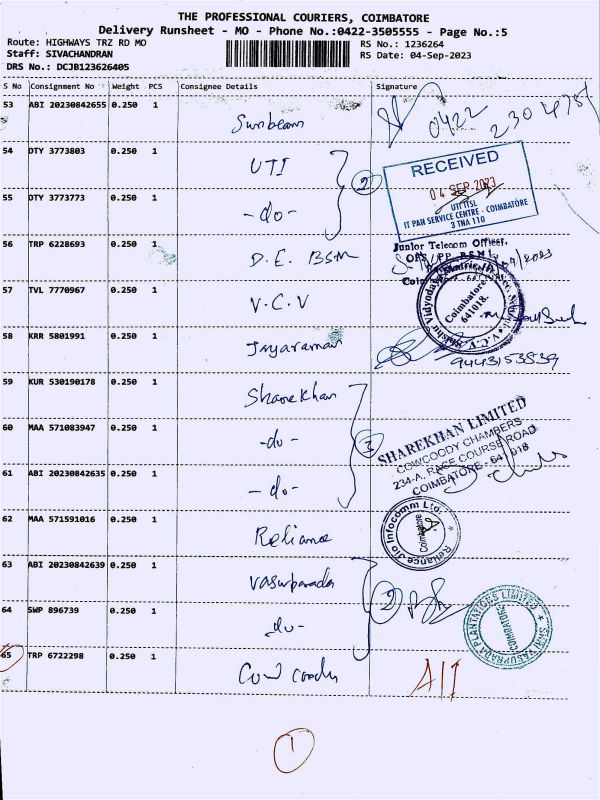 THE PROFESSIONAL COURIERS, COIMBATORE
Delivery Runsheet - MO - Phone No.:0422-3505555 - Page No.:5
Route: HIGHWAYS TRZ RD MO
RS No.: 1236264
Staff: SIVACHANDRAN
RS Date: 04-Sep-2023
DRS No.: DCJB123626405
S No Consignment No Weight PCS Consignee Details Signature
53 ABI 20230842655 0.250 1 Sunbeam 0422
54 DTY 3773803 0.250 1 UTI
2
RECEIVED
04 SEP 2023
UTI ITSL
IT PAN SERVICE CENTRE - COIMBATORE
3 TNA 110
55 DTY 3773773 0.250 1 -do-
56 TRP 6228693 0.250 1 D.E. BSNL
Junior Telecom Officer,
57 TVL 7770967 0.250 1 V.C.V
Coimbatore
641018.
58 KRR 5801991 0.250 1 Jayaraman
9443153839
59 KUR 530190178 0.250 1 Sharekhan
60 MAA 571083947 0.250 1 -do-
3
SHAREKHAN LIMITED
COWCOODY CHAMBERS
234-A, RACE COURSE ROAD
COIMBATORE - 641 018
61 ABI 20230842635 0.250 1 -do-
62 MAA 571591016 0.250 1 Reliance
Reliance Jio Infocomm Ltd.
Coimbatore
63 ABI 20230842639 0.250 1 Vasuprada
2
64 SWP 896739 0.250 1 -do-
SHRI VASUPRADA PLANTATIONS LIMITED
COIMBATORE
65 TRP 6722298 0.250 1 Cow coody
1